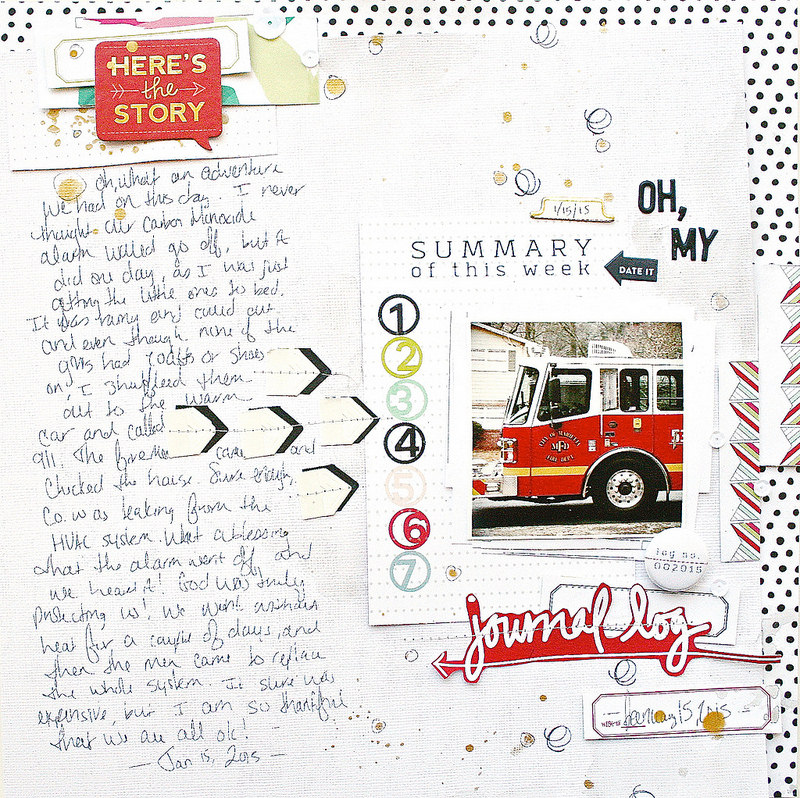 HERE'S
the
STORY
Oh, what an adventure
we had on this day. I never
thought our Carbon Monoxide
alarm would go off, but it
did one day, as I was just
getting the little ones to bed.
It was rainy and cold out
and even though none of the
girls had coats or shoes
on, I shuffled them
out to the warm
car and called
911. The firemen came and
checked the house. Sure enough,
Co. was leaking from the
HVAC system. What a blessing
that the alarm went off and
we heard it! God was truly
protecting us! We went without
heat for a couple of days, and
then the men came to replace
the whole system. It sure was
expensive, but I am so thankful
that we are all ok!
— Jan 15, 2015 —
1/15/15
OH,
MY
SUMMARY
of this week
DATE IT
1
2
3
4
5
6
7
CITY OF MARIETTA
MFD
FIRE DEPT.
log no.
002015
journal log
January 15, 2015